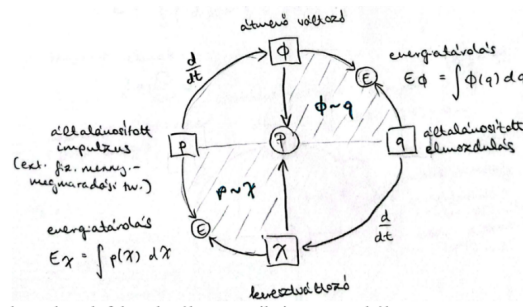 átmenő változó
d/dt
ϕ
energiatárolás
E
Eϕ = ∫ ϕ(q) dq
ϕ~q
általánosított
impulzus
(ext. fiz. menny.-
megmaradási tv.)
p
P
q
általánosított
elmozdulás
p~χ
energiatárolás
E
Eχ = ∫ p(χ) dχ
d/dt
χ
keresztváltozó